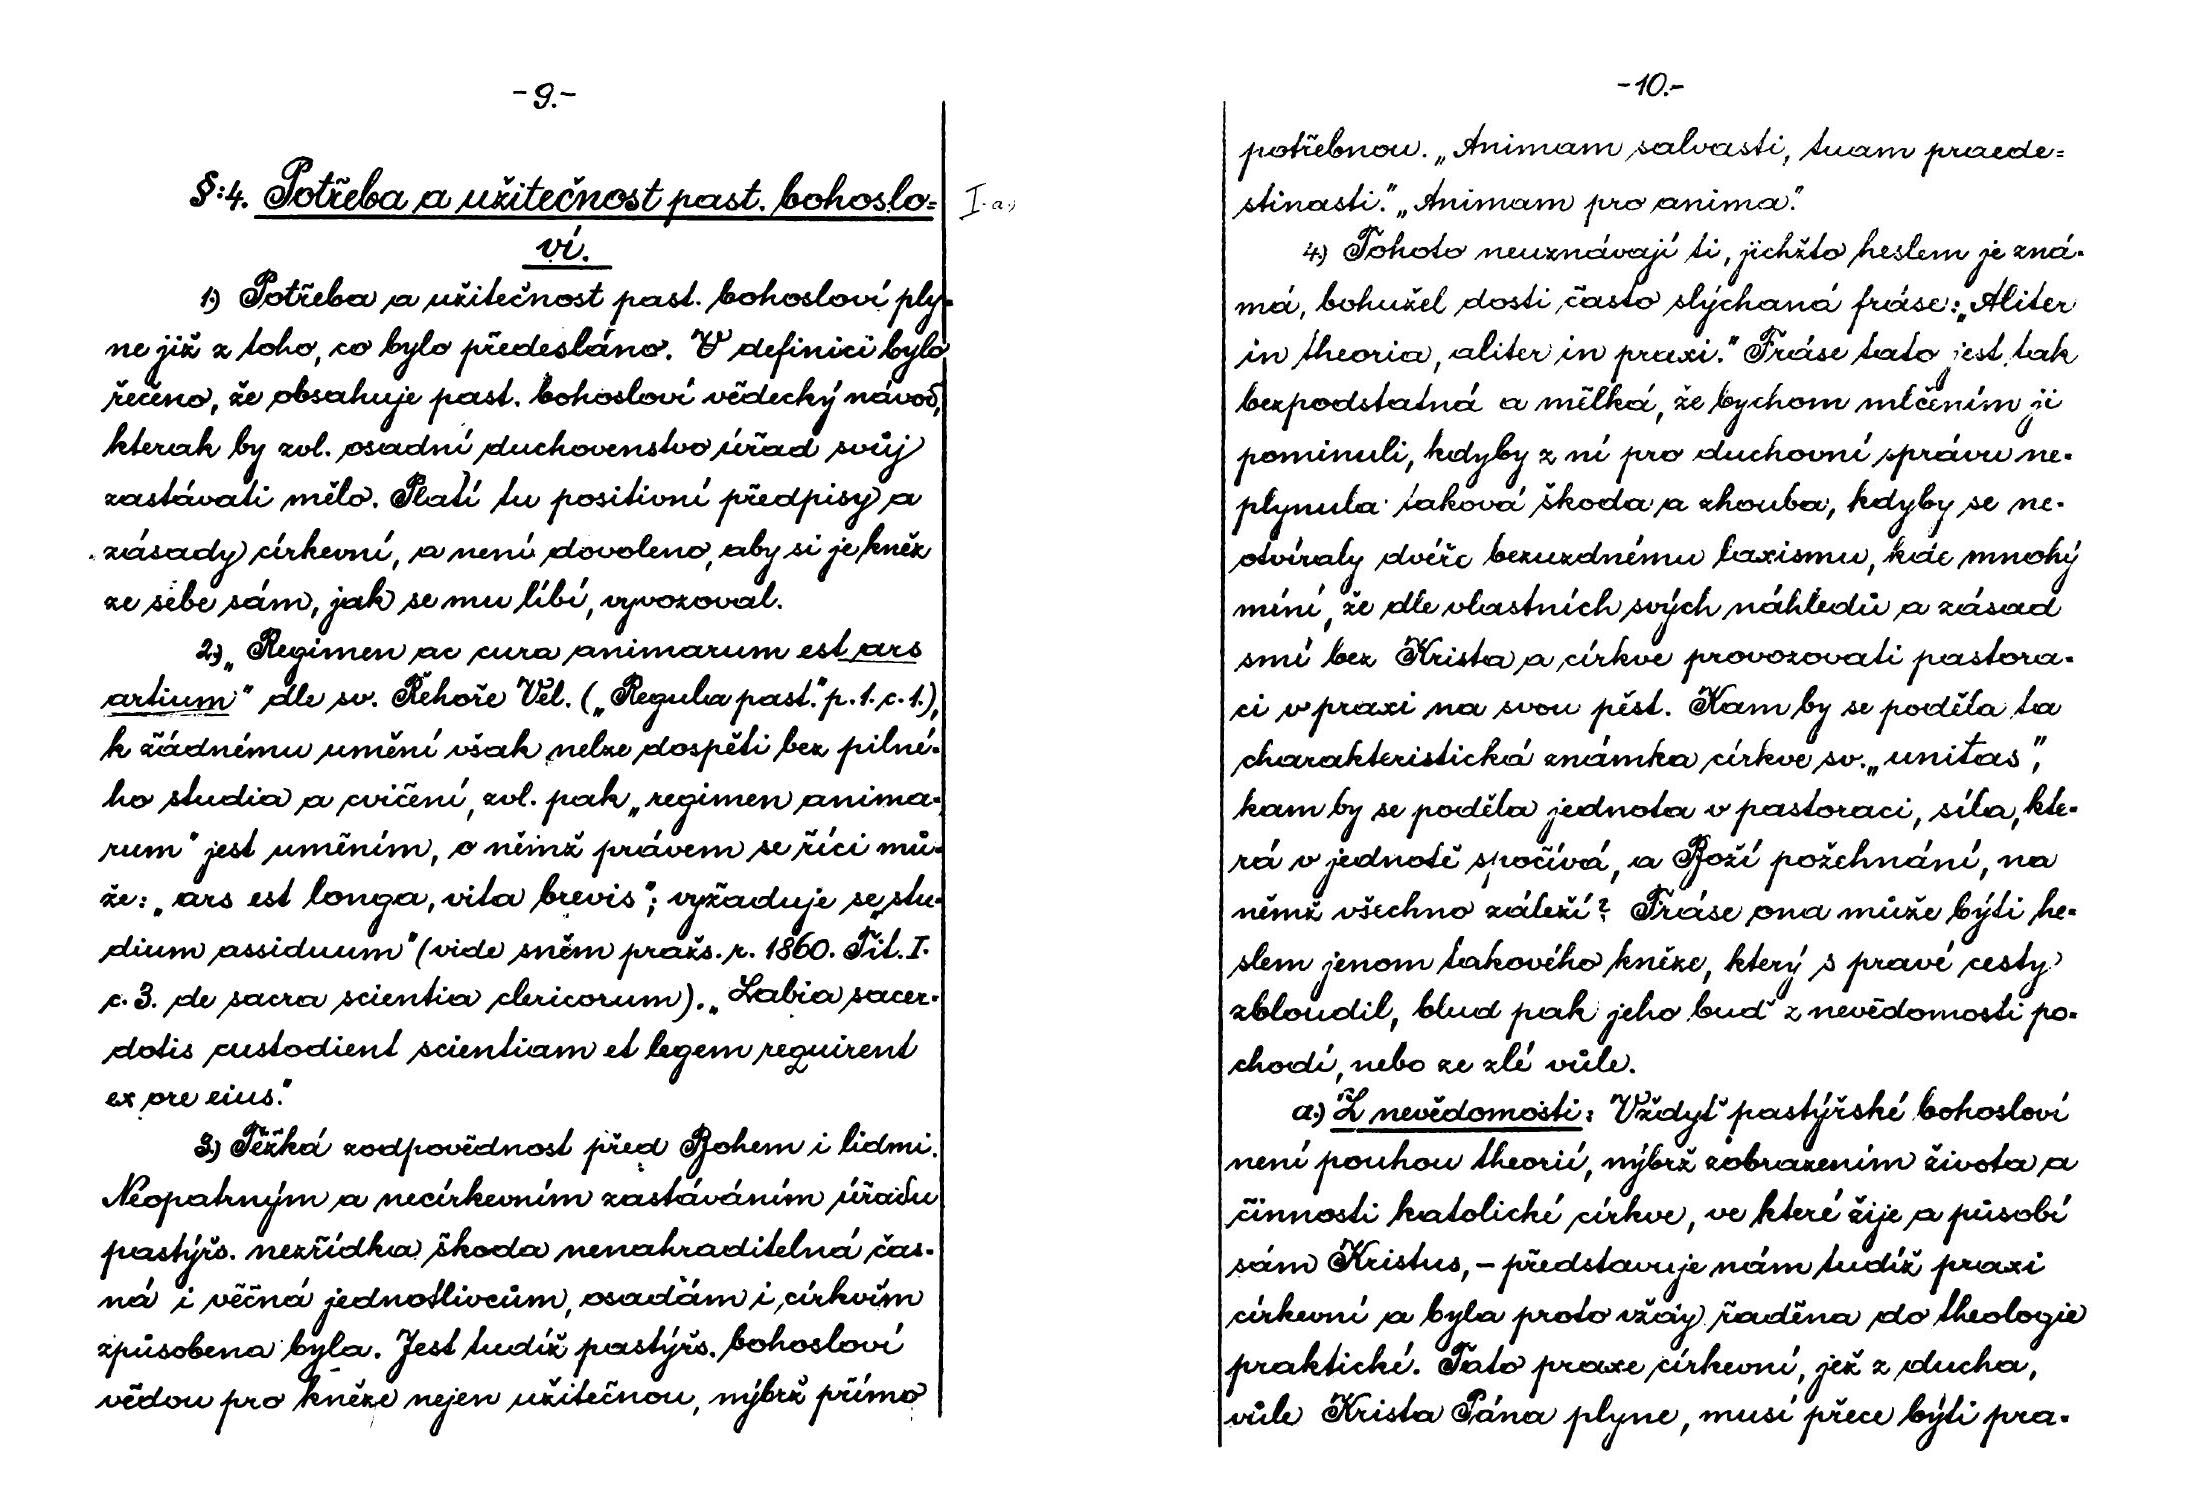 -9.-
§:4. Potřeba a užitečnost past. bohoslo=
ví.
I. a.)
1.) Potřeba a užitečnost past. bohosloví ply=
ne již z toho, co bylo předesláno. V definici bylo
řečeno, že obsahuje past. bohosloví vědecký návod,
kterak by zvl. osadní duchovenstvo úřad svůj
zastávati mělo. Platí tu positivní předpisy a
zásady církevní, a není dovoleno, aby si je kněz
ze sebe sám, jak se mu líbí, vyvozoval.
2.) „Regimen ac cura animarum est ars
artium" dle sv. Řehoře Vel. („Regula past." p. 1. c. 1.),
k žádnému umění však nelze dospěti bez pilné-
ho studia a cvičení, zvl. pak „regimen anima-
rum" jest uměním, o němž právem se říci mů-
že: „ars est longa, vita brevis"; vyžaduje se „stu-
dium assiduum" (vide sněm pražs. r. 1860. Tit. I.
c. 3. de sacra scientia clericorum). „Labia sacer-
dotis custodient scientiam et legem requirent
ex ore eius."
3.) Těžká zodpovědnost před Bohem i lidmi.
Neopatrným a necírkevním zastáváním úřadu
pastýřs. nezřídka škoda nenahraditelná čas-
ná i věčná jednotlivcům, osadám i církvím
způsobena byla. Jest tudíž pastýřs. bohosloví
vědou pro kněze nejen užitečnou, nýbrž přímo
-10.-
potřebnou. „Animam salvasti, tuam praede=
stinasti." „Animam pro anima."
4.) Tohoto neuznávají ti, jichžto heslem je zná-
má, bohužel dosti často slýchaná fráse: „Aliter
in theoria, aliter in praxi." Fráse tato jest tak
bezpodstatná a mělká, že bychom mlčením ji
pominuli, kdyby z ní pro duchovní správu ne-
plynula taková škoda a zhouba, kdyby se ne-
otvíraly dvéře bezuzdnému laxismu, kde mnohý
míní, že dle vlastních svých náhledů a zásad
smí bez Krista a církve provozovati pastora-
ci v praxi na svou pěst. Kam by se poděla ta
charakteristická známka církve sv. „unitas",
kam by se poděla jednota v pastoraci, síla, kte-
rá v jednotě spočívá, a Boží požehnání, na
němž všechno záleží? Fráse ona může býti he-
slem jenom takového kněze, který s pravé cesty
zbloudil, blud pak jeho buď z nevědomosti po-
chodí, nebo ze zlé vůle.
a.) Z nevědomosti: Vždyť pastýřské bohosloví
není pouhou theorií, nýbrž zobrazením života a
činnosti katolické církve, ve které žije a působí
sám Kristus, – představuje nám tudíž praxi
církevní a byla proto vždy řaděna do theologie
praktické. Tato praxe církevní, jež z ducha,
vůle Krista Pána plyne, musí přece býti pra-